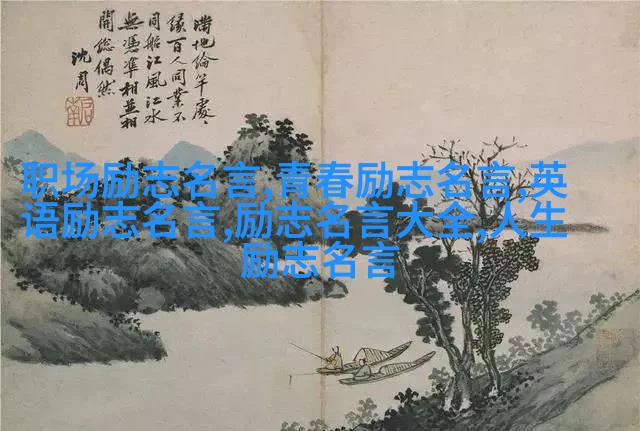 滿地綸竿處、
緣百人同業不
同船江風江水
無憑準相並相
開總偶然
沈周
职场励志名言,青春励志名言,英
语励志名言,励志名言大全,人生
励志名言